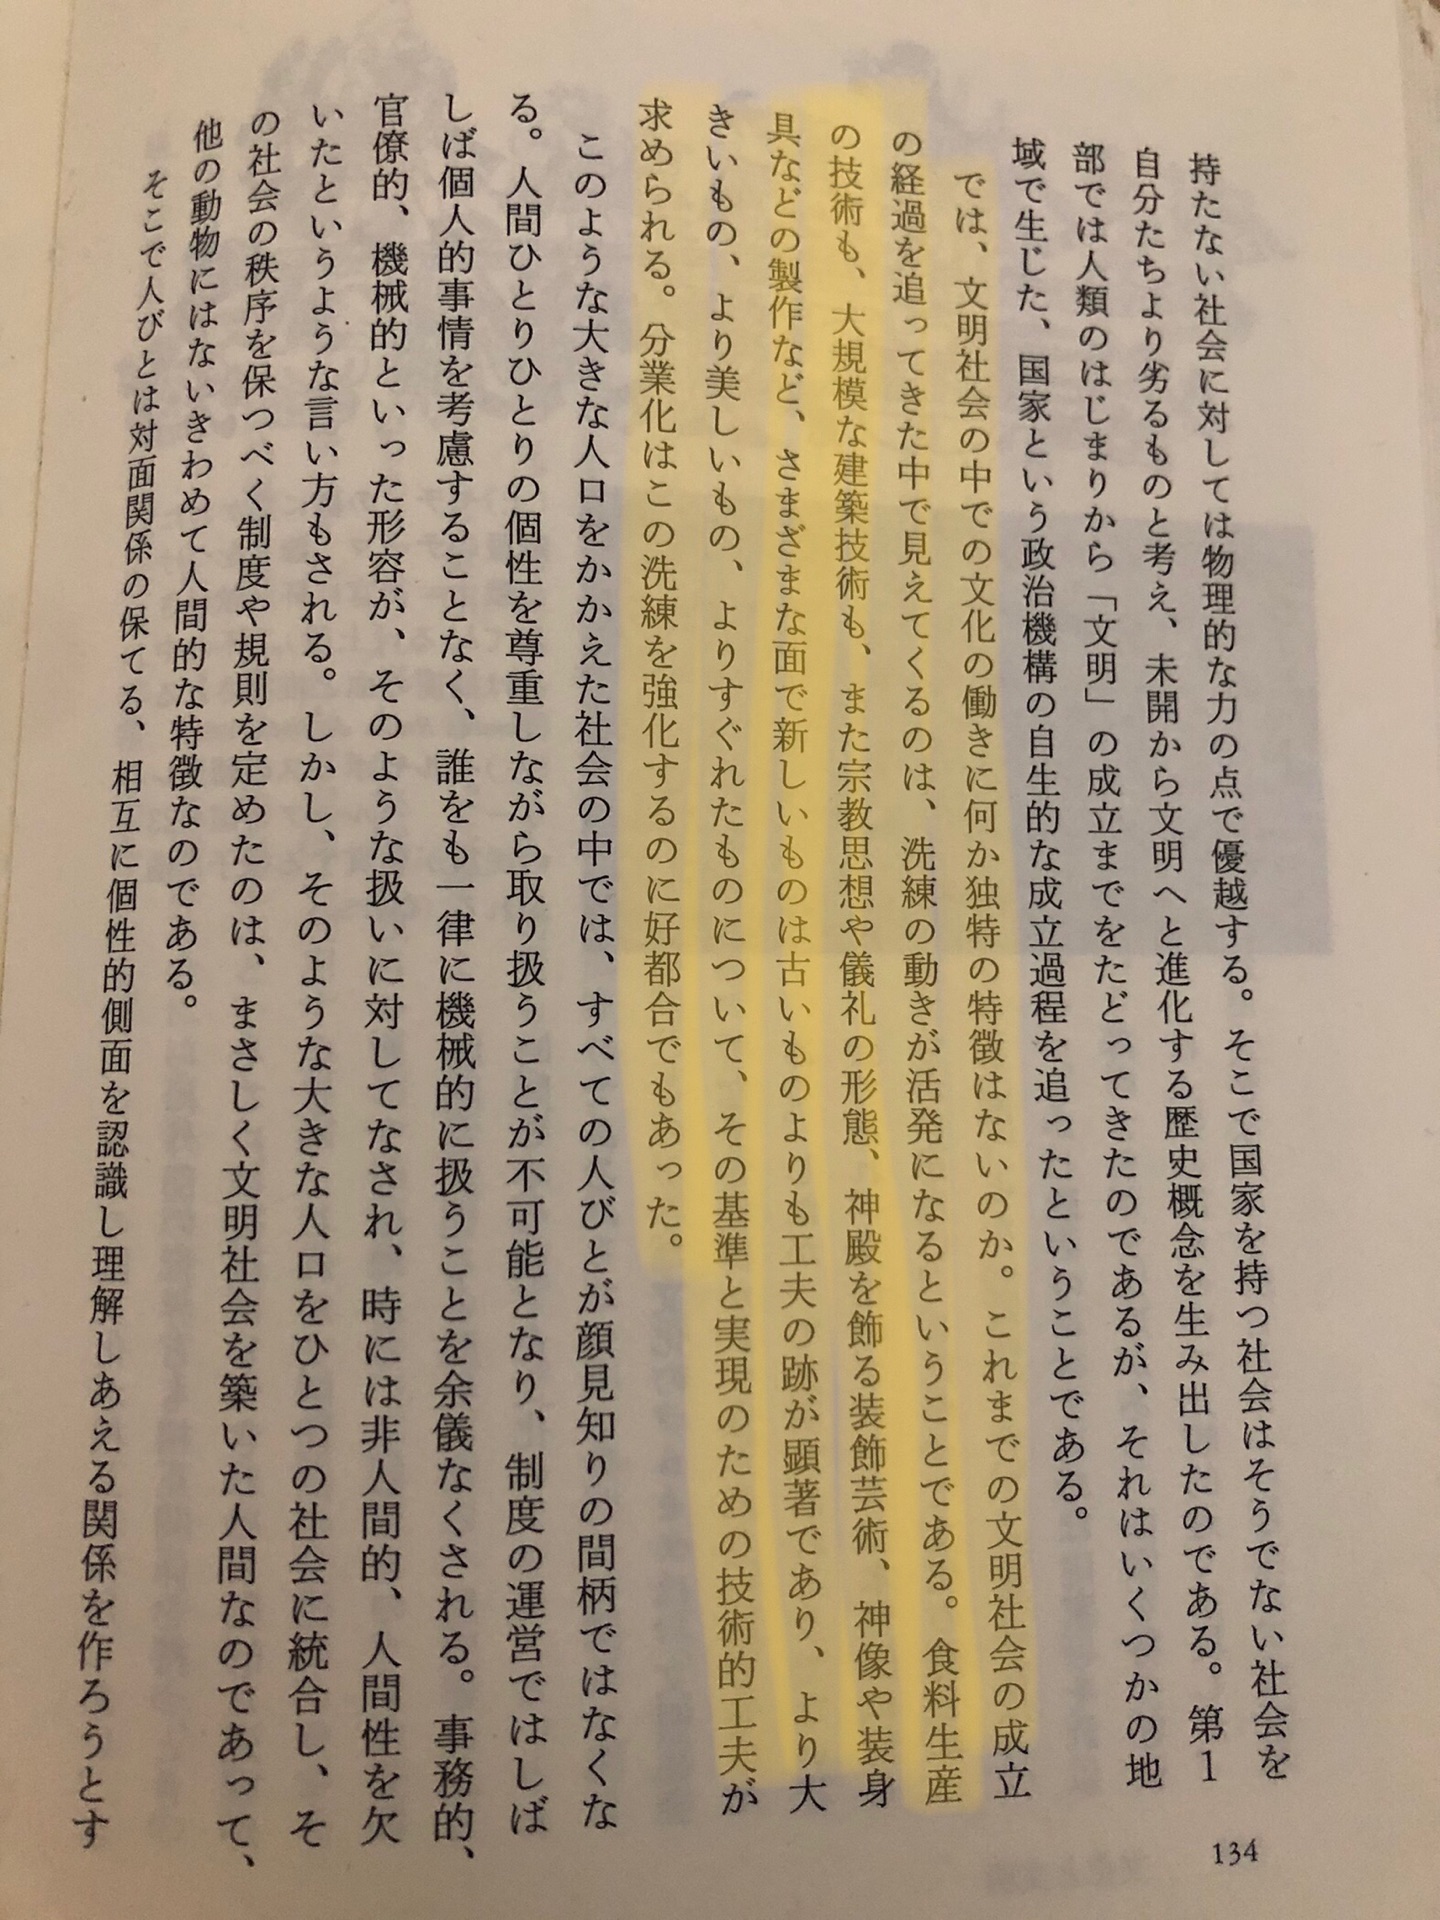 持たない社会に対しては物理的な力の点で優越する。そこで国家を持つ社会はそうでない社会を
自分たちより劣るものと考え、未開から文明へと進化する歴史概念を生み出したのである。第1
部では人類のはじまりから「文明」の成立までをたどってきたのであるが、それはいくつかの地
域で生じた、国家という政治機構の自生的な成立過程を追ったということである。
では、文明社会の中での文化の働きに何か独特の特徴はないのか。これまでの文明社会の成立
の経過を追ってきた中で見えてくるのは、洗練の動きが活発になるということである。食料生産
の技術も、大規模な建築技術も、また宗教思想や儀礼の形態、神殿を飾る装飾芸術、神像や装身
具などの製作など、さまざまな面で新しいものは古いものよりも工夫の跡が顕著であり、より大
きいもの、より美しいもの、よりすぐれたものについて、その基準と実現のための技術的工夫が
求められる。分業化はこの洗練を強化するのに好都合でもあった。
このような大きな人口をかかえた社会の中では、すべての人びとが顔見知りの間柄ではなくな
る。人間ひとりひとりの個性を尊重しながら取り扱うことが不可能となり、制度の運営ではしば
しば個人的事情を考慮することなく、誰をも一律に機械的に扱うことを余儀なくされる。事務的、
官僚的、機械的といった形容が、そのような扱いに対してなされ、時には非人間的、人間性を欠
いたというような言い方もされる。しかし、そのような大きな人口をひとつの社会に統合し、そ
の社会の秩序を保つべく制度や規則を定めたのは、まさしく文明社会を築いた人間なのであって、
他の動物にはないきわめて人間的な特徴なのである。
そこで人びとは対面関係の保てる、相互に個性的側面を認識し理解しあえる関係を作ろうとす
134